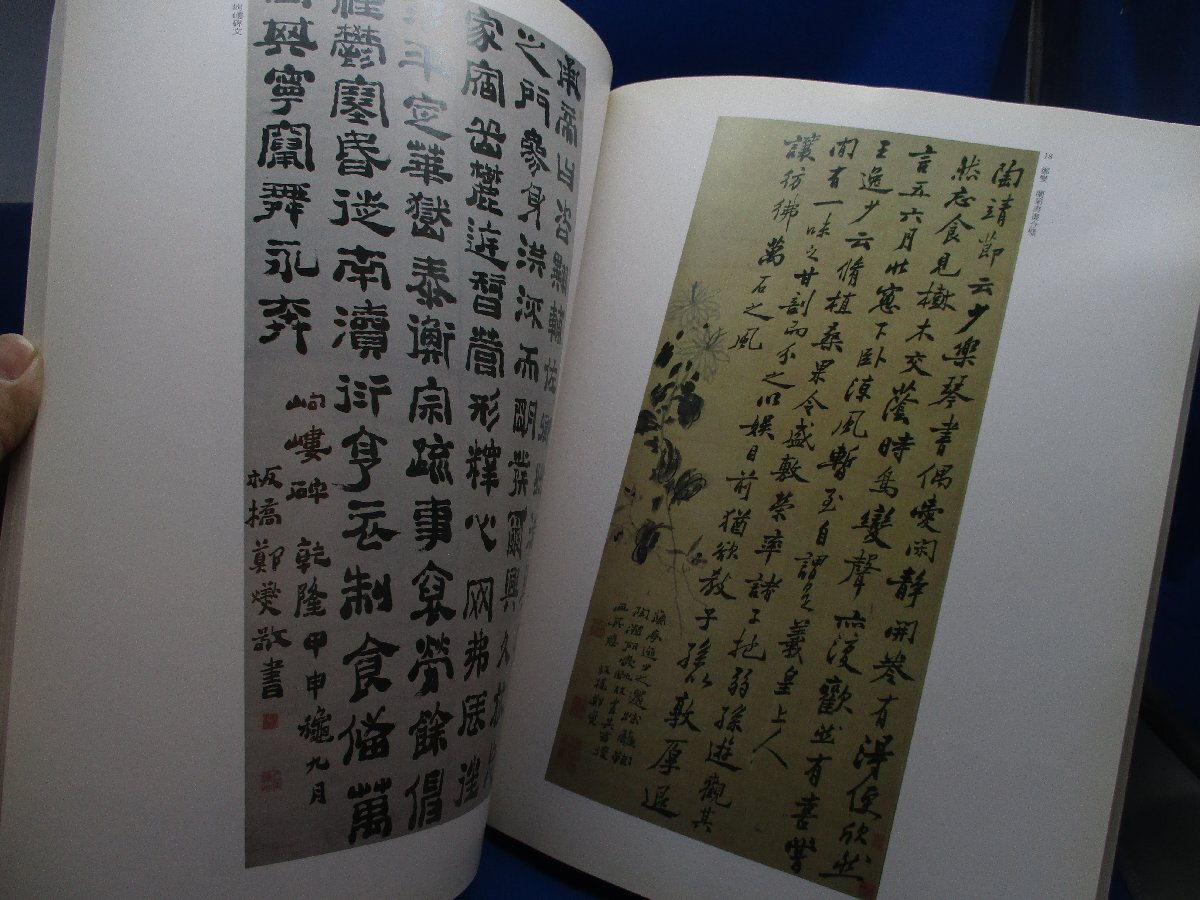 18 鄭燮
陶靖節云少樂琴書偶愛閑靜開卷有得便欣然
然忘食見樹木交蔭時鳥變聲亦復歡然有喜嘗
言五六月北窓下臥涼風暫至自謂是羲皇上人
王逸少云脩植桑果今盛敷榮率諸子抱弱孫遊觀其
間有一味之甘剖而分之以娛目前猶欲教子孫以敦厚退
讓彷彿萬石之風
板橋鄭燮
承帝曰咨
之門參身洪流而明發爾興久旅
家宿岳麓庭智營形釋心罔弗辰往
平定華嶽泰衡宗疏事裒勞餘伸
禋鬱塞昏徙南瀆衍亨衣制食備萬
國其寧竄舞永奔
岣嶁碑 乾隆甲申穐九月
板橋鄭燮敬書
岣嶁碑文